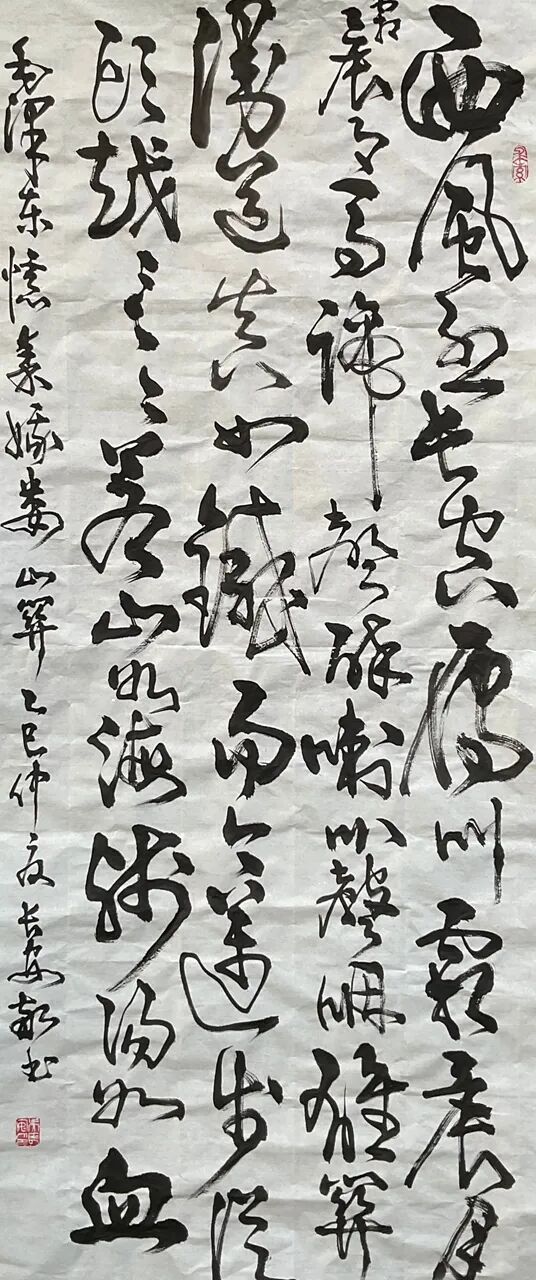 西風烈長空雁叫霜晨月
霜晨月馬蹄聲碎喇叭聲咽雄關
漫道真如鐵而今邁步從
頭越〻〻〻蒼山如海殘陽如血
毛澤東憶秦娥婁山關乙巳仲夏長安書